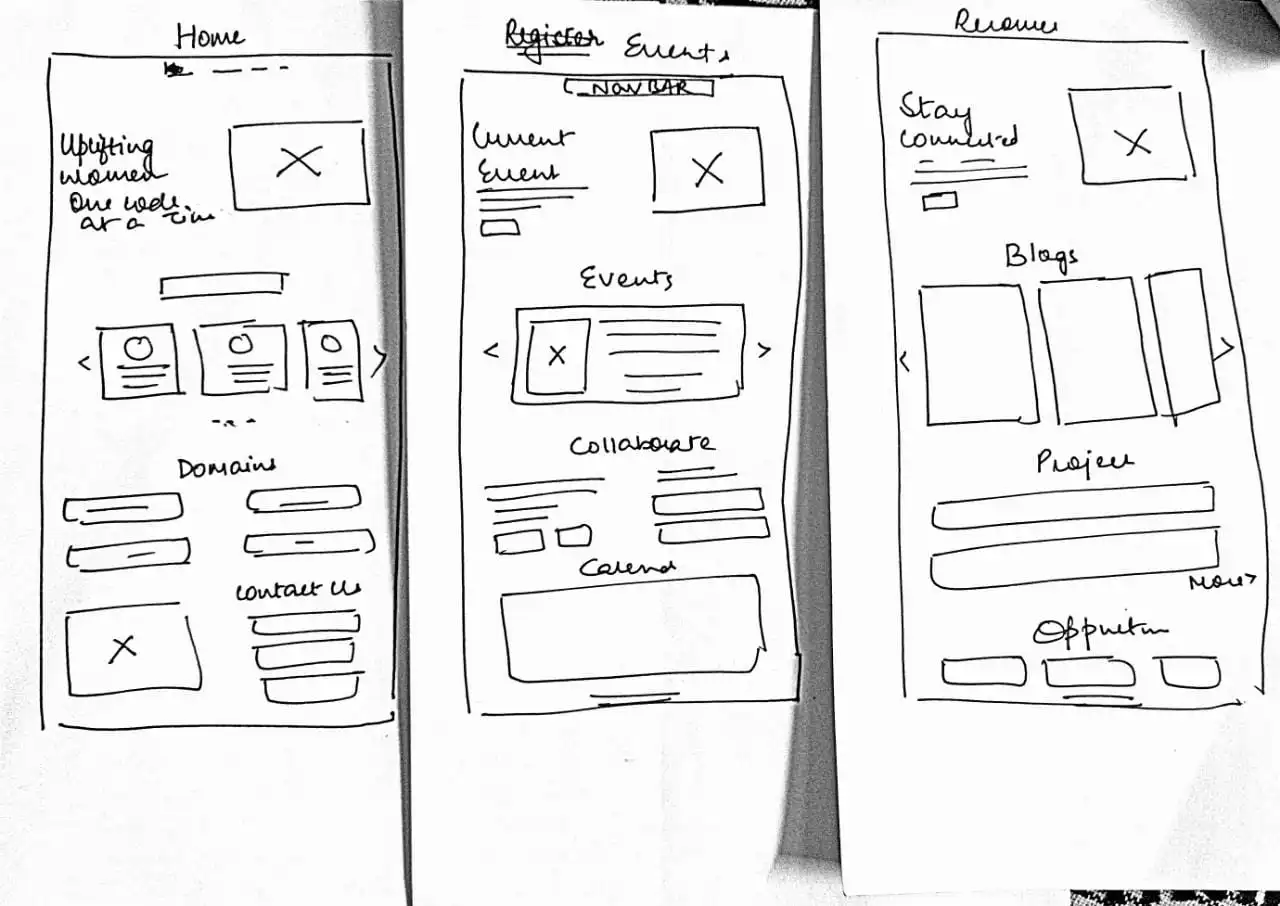 Home
Uplifting
women
One code
at a Time
Domains
Contact Us
Register
Events
NAVBAR
Current
Event
Events
Collaborate
Calend
Stay
Connected
Blogs
Project
More>